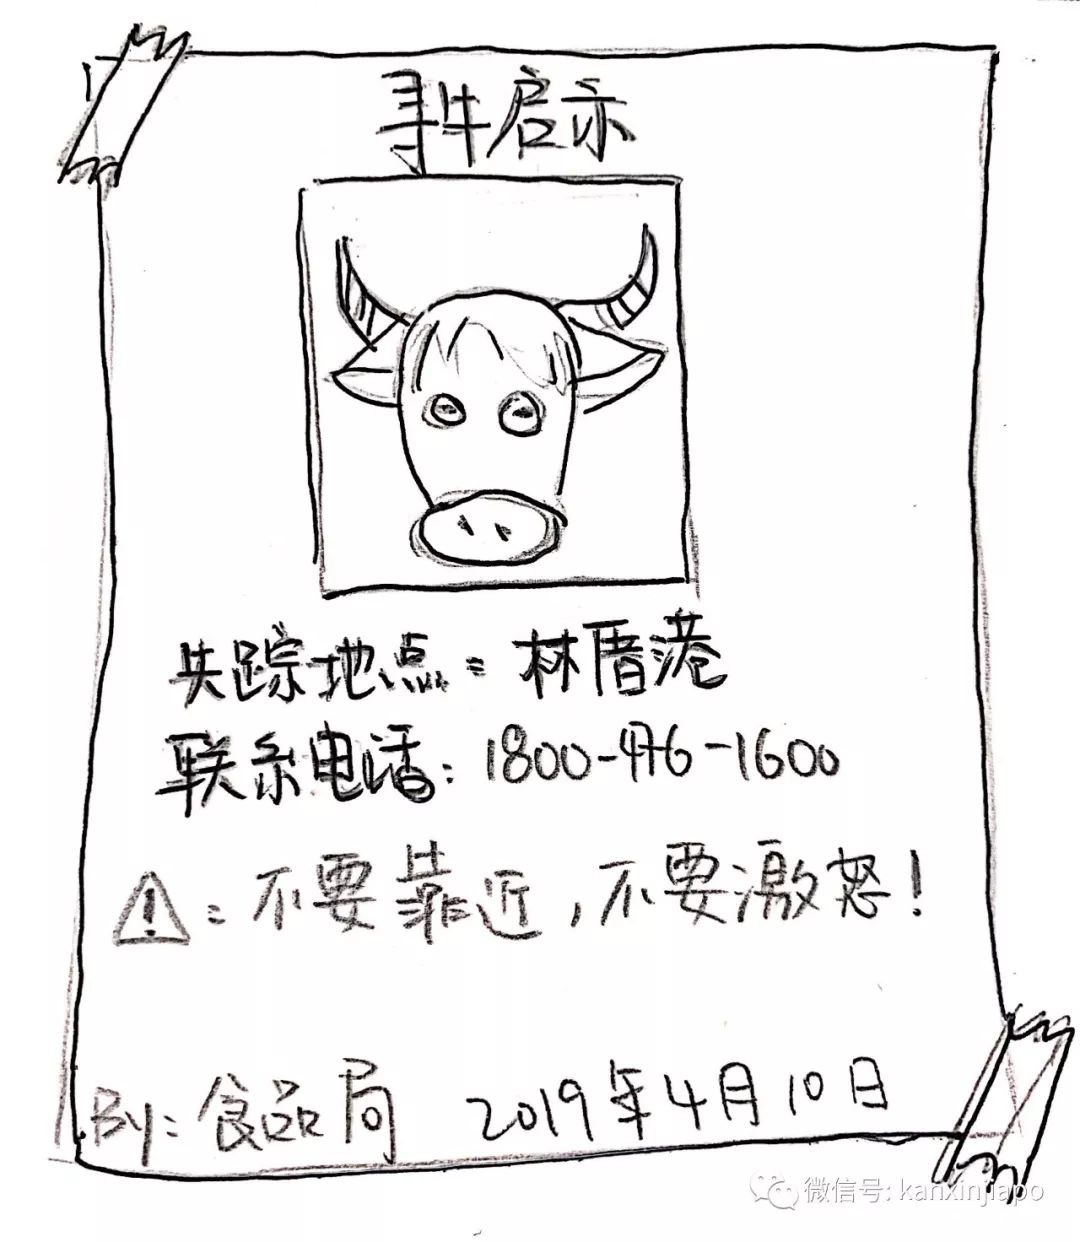 寻牛启示
失踪地点：林厝港
联系电话：1800-476-1600
⚠：不要靠近，不要激怒！
By：食品局 2019年4月10日
微信号: kanxinjiapo